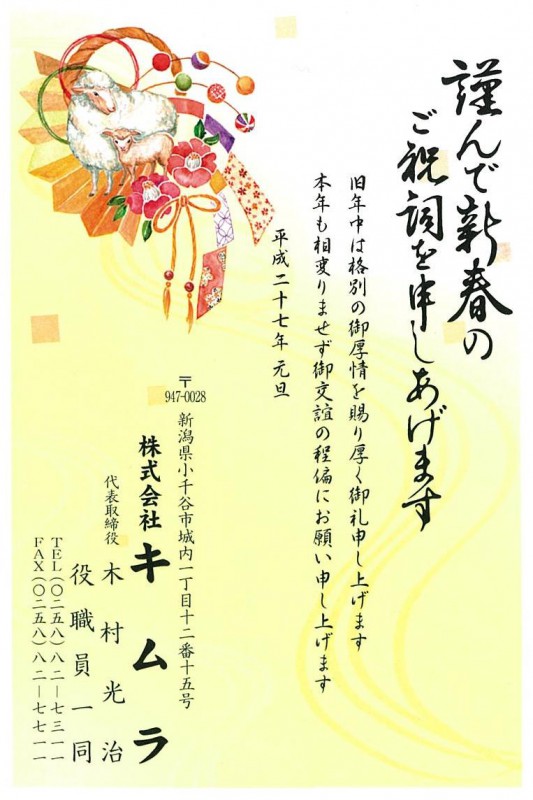 謹んで新春の
ご祝詞を申しあげます
旧年中は格別の御厚情を賜り厚く御礼申し上げます
本年も相変りませず御交誼の程偏にお願い申し上げます
平成二十七年 元旦
〒947-0028
新潟県小千谷市城内一丁目十二番十五号
株式会社キムラ
代表取締役 木村光治
役職員一同
TEL(〇二五八)八二―七三一一
FAX(〇二五八)八二―七七一一